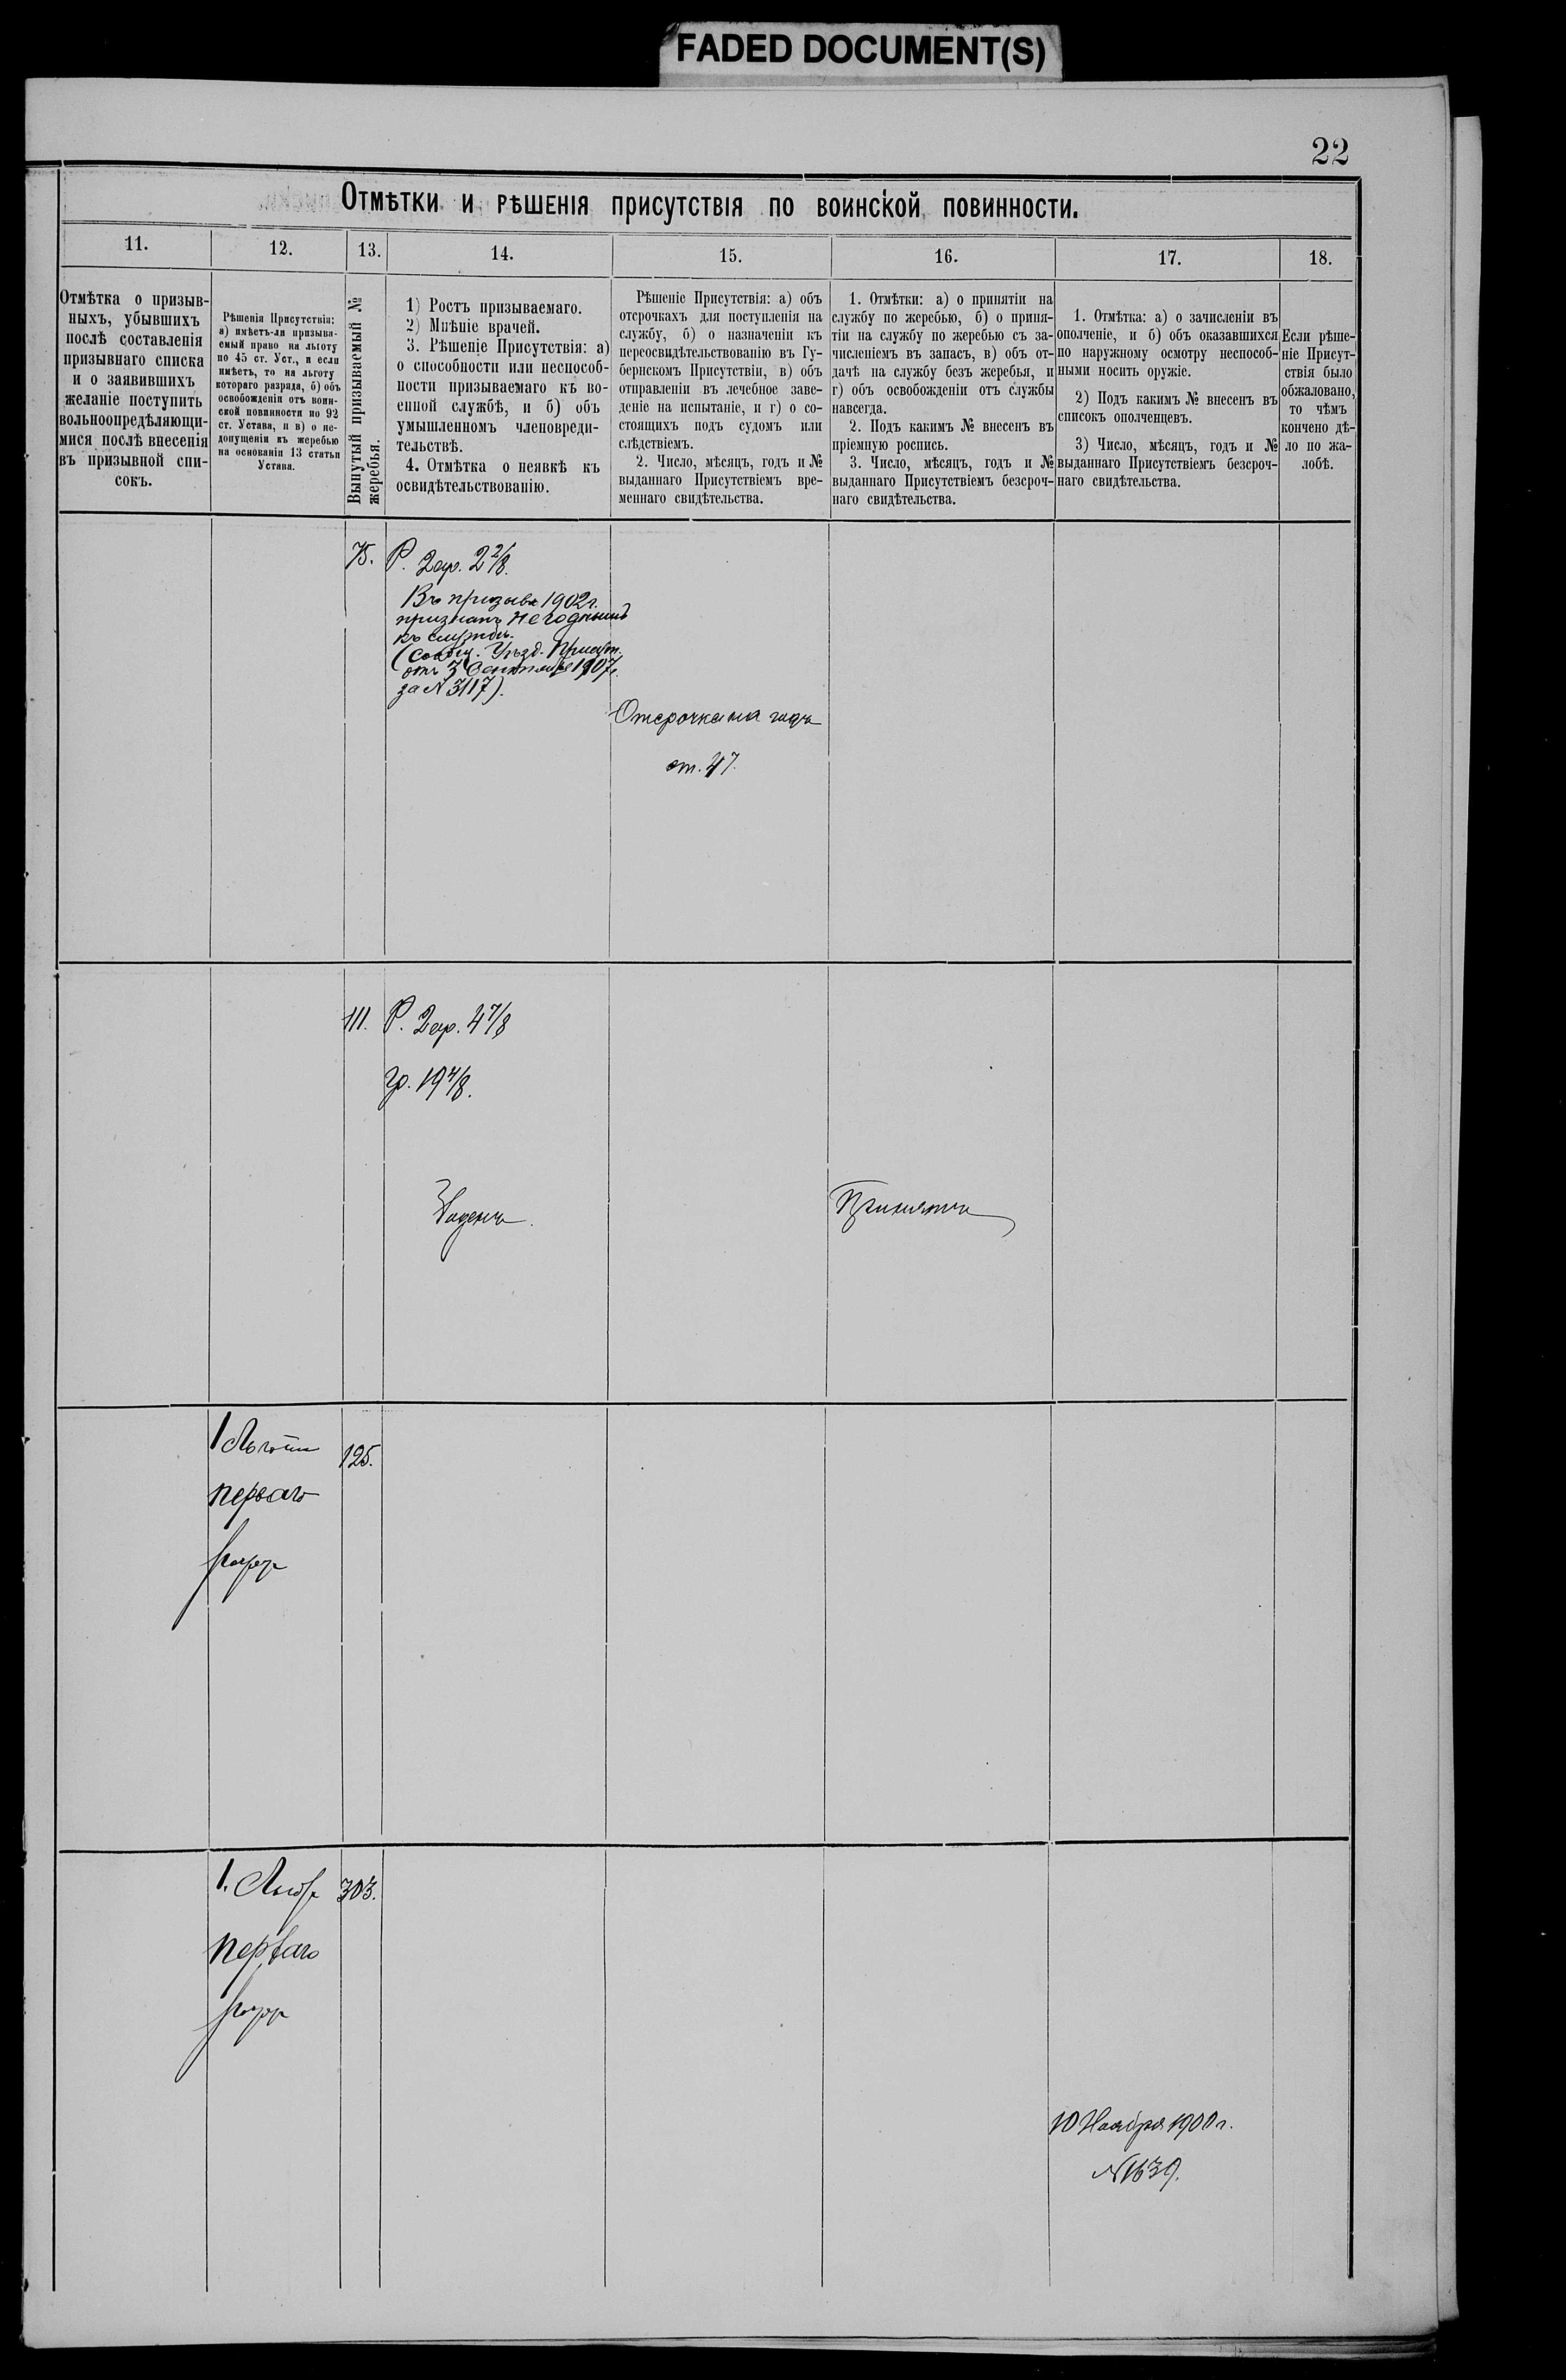 FADED DOCUMENT(S)
22
Отмѣтки и рѣшенія присутствія по воинской повинности.
11.
12.
13.
14.
15.
16.
17.
18.
Отмѣтка о призыв-
ныхъ, убывшихъ
послѣ составленія
призывнаго списка
и о заявившихъ
желаніе поступить
вольноопредѣляющи-
мися послѣ внесенія
въ призывной спи-
сокъ.
Рѣшенія Присутствія:
а) имѣетъ-ли призыва-
емый право на льготу
по 45 ст. Уст., и если
имѣетъ, то на льготу
котораго разряда, б) объ
освобожденіи отъ воин-
ской повинности по 92
ст. Устава, и в) о не-
допущеніи къ жеребью
на основаніи 13 статьи
Устава.
Вынутый призываемый №
жеребья.
1) Ростъ призываемаго.
2) Мнѣніе врачей.
3. Рѣшеніе Присутствія: а)
о способности или неспособ-
ности призываемаго къ во-
енной службѣ, и б) объ
умышленномъ членовреди-
тельствѣ.
4. Отмѣтка о неявкѣ къ
освидѣтельствованію.
Рѣшеніе Присутствія: а) объ
отсрочкахъ для поступленія на
службу, б) о назначеніи къ
переосвидѣтельствованію въ Гу-
бернскомъ Присутствіи, в) объ
отправленіи въ лечебное заве-
деніе на испытаніе, и г) о со-
стоящихъ подъ судомъ или
слѣдствіемъ.
2. Число, мѣсяцъ, годъ и №
выданнаго Присутствіемъ вре-
меннаго свидѣтельства.
1. Отмѣтки: а) о принятіи на
службу по жеребью, б) о приня-
тіи на службу по жеребью съ за-
численіемъ въ запасъ, в) объ от-
дачѣ на службу безъ жеребья, и
г) объ освобожденіи отъ службы
навсегда.
2. Подъ какимъ № внесенъ въ
пріемную роспись.
3. Число, мѣсяцъ, годъ и №
выданнаго Присутствіемъ безсроч-
наго свидѣтельства.
1. Отмѣтка: а) о зачисленіи въ
ополченіе, и б) объ оказавшихся
по наружному осмотру неспособ-
ными носить оружіе.
2) Подъ какимъ № внесенъ въ
списокъ ополченцевъ.
3) Число, мѣсяцъ, годъ и №
выданнаго Присутствіемъ безсроч-
наго свидѣтельства.
Если рѣше-
ніе Присут-
ствія было
обжаловано,
то чѣмъ
кончено дѣ-
ло по жа-
лобѣ.
75.
Р. 2 ар. 2 2/8.
Въ призывъ 1902 г.
признанъ негоднымъ
къ службѣ.
(Сообщ. Уѣзд. Присут.
отъ 3 Сентября 1907 г.
за N 3117).
Отсрочка на годъ
ст. 47.
111.
Р. 2 ар. 4 7/8
гр. 19 4/8.
Годенъ.
Принятъ
1 Льготы
перваго
разр
125.
1. Льгот
перваго
разр
303.
10 Ноября 1900 г.
N 1639.